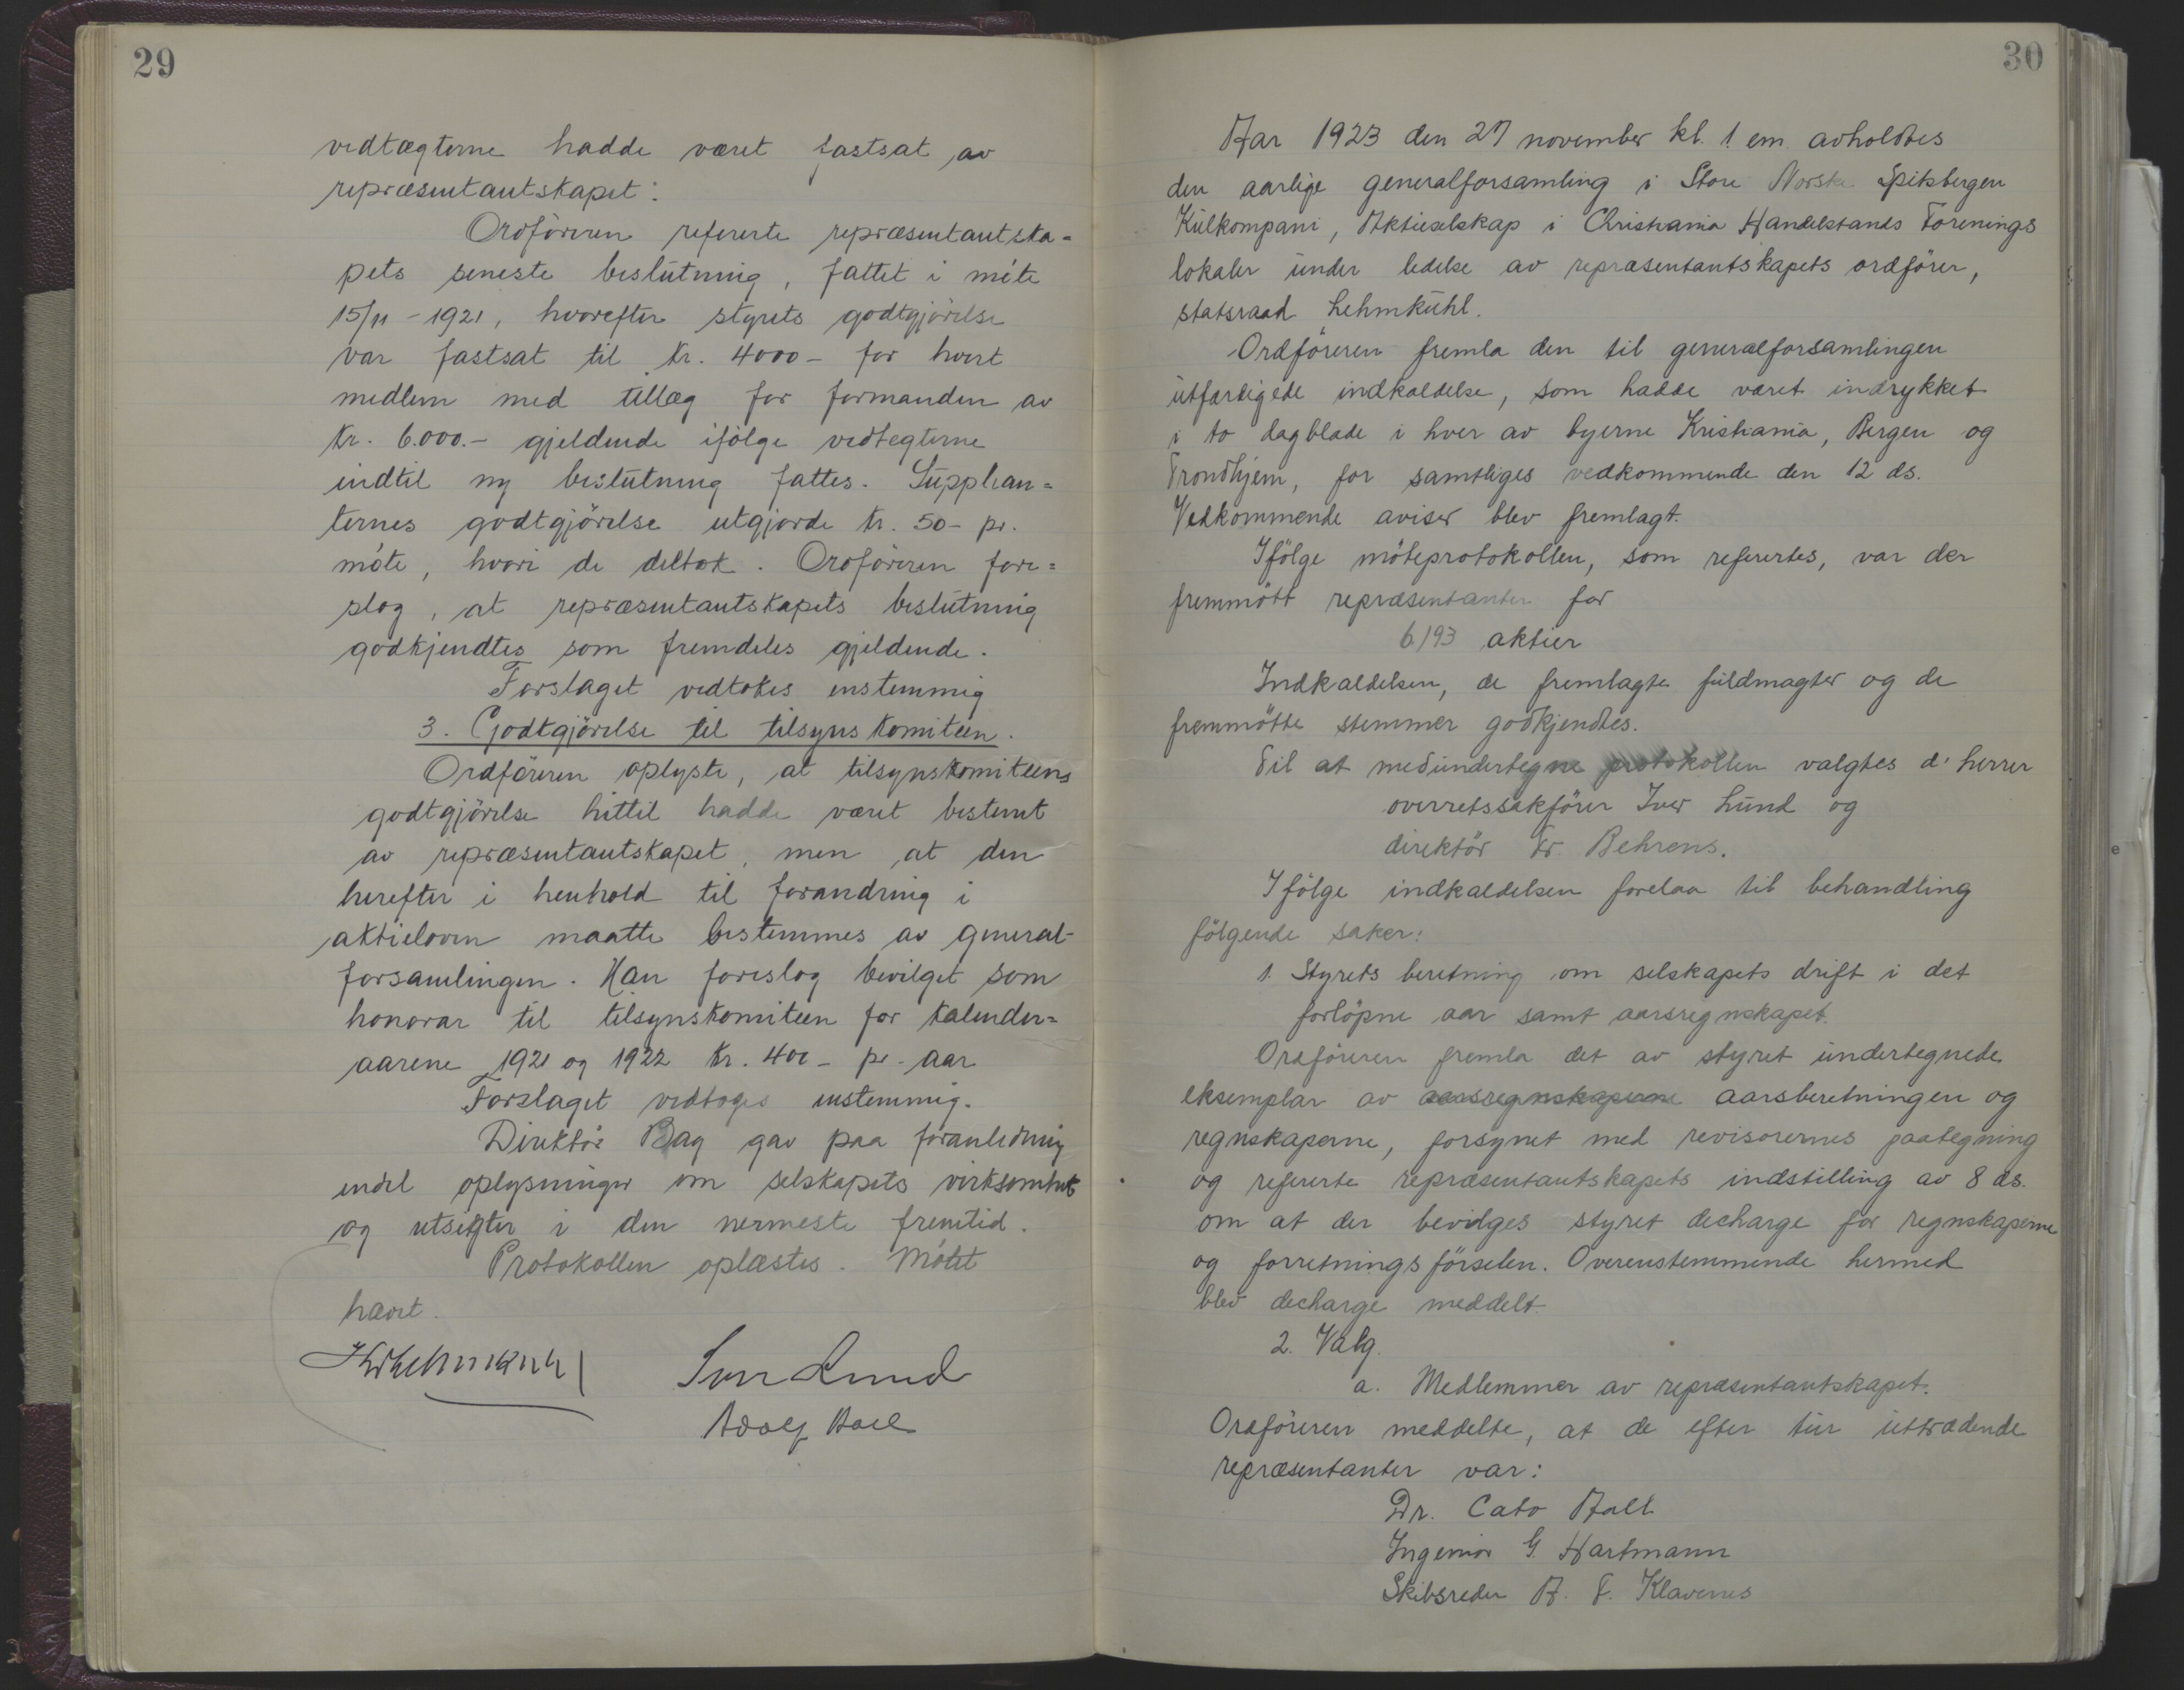 29
vedtægterne hadde været fastsat av
repræsentantskapet:
Ordföreren refererte repræsentantska=
pets seneste beslutning, fattet i möte
15/11-1921, hvorefter styrets godtgjörelse
var fastsat til kr. 4000- for hvert
medlem med tillæg for formanden av
kr. 6.000.- gjeldende ifölge vedtegterne
indtil ny beslutning fattes. Supplean=
ternes godtgjörelse utgjorde kr. 50- pr.
möte, hvori de deltok. Ordföreren fore=
slog, at repræsentantskapets beslutning
godkjendtes som fremdeles gjeldende.
Forslaget vedtokes enstemmig
3. Godtgjörelse til tilsynskomiteen.
Ordföreren oplyste, at tilsynskomiteens
godtgjörelse hittil hadde været bestemt
av repræsentantskapet, men at den
herefter i henhold til forandring i
aktieloven maatte bestemmes av general-
forsamlingen. Han foreslog bevilget som
honorar til tilsynskomiteen for kalender=
aarene 1921 og 1922 kr. 400- pr. aar
Forslaget vedtoges enstemmig.
Direktör Bay gav paa foranledning
endel oplysninger om selskapets virksomhet
og utsigter i den nermeste fremtid.
Protokollen oplæstes. Mötet
hævet.
Kr Lehmkuhl
Iver Lund
Adolf Hoel
30
Aar 1923 den 27 november kl. 1 em. avholdtes
den aarlige generalforsamling i Store Norske Spitsbergen
Kulkompani, Aktieselskap i Christiania Handelstands Forenings
lokaler under ledelse av repræsentantskapets ordförer,
statsraad Lehmkuhl.
Ordföreren fremla den til generalforsamlingen
utfærdigede indkaldelse, som hadde været indrykket
i to dagblade i hver av byerne Kristiania, Bergen og
Trondhjem, for samtliges vedkommende den 12 ds.
Vedkommende aviser blev fremlagt.
Ifölge möteprotokollen, som referertes, var der
fremmött repræsentanter for
6193 aktier
Indkaldelsen, de fremlagte fuldmagter og de
fremmötte stemmer godkjendtes.
Til at medundertegne protokollen valgtes d' herrer
overretssakförer Iver Lund og
direktör Fr. Behrens.
Ifölge indkaldelsen forelaa til behandling
fölgende saker:
1. Styrets beretning om selskapets drift i det
forlöpne aar samt aarsregnskapet.
Ordföreren fremla det av styret undertegnede
eksemplar av aarsregnskaperne aarsberetningen og
regnskaperne, forsynet med revisorernes paategning
og refererte repræsentantskapets indstilling av 8 ds.
om at der bevilges styret decharge for regnskaperne
og forretningsförselen. Overenstemmende hermed
blev decharge meddelt.
2. Valg.
a. Medlemmer av repræsentantskapet.
Ordföreren meddelte, at de efter tur uttrædende
repræsentanter var:
Dr. Cato Aall
Ingeniör G. Hartmann
Skibsreder A. F. Klaveness